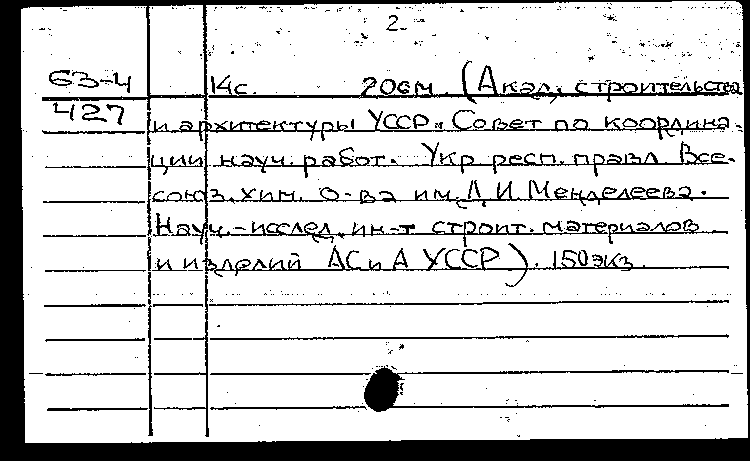 2.
63-4 14с. 20см. (Акад. строительства
427
и архитектуры УССР. Совет по координа-
ции науч. работ. Укр респ. правл. Все-
союз. хим. о-ва им. Д. И. Менделеева.
Науч.-исслед. ин-т строит. материалов
и изделий АСиА УССР). 150экз.